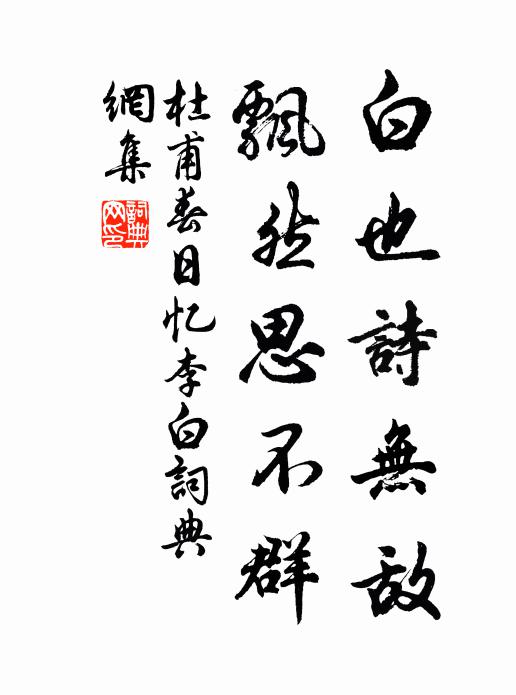 白也詩無敵
飄然思不群
杜甫春日忆李白詞典
網集
詞典網印